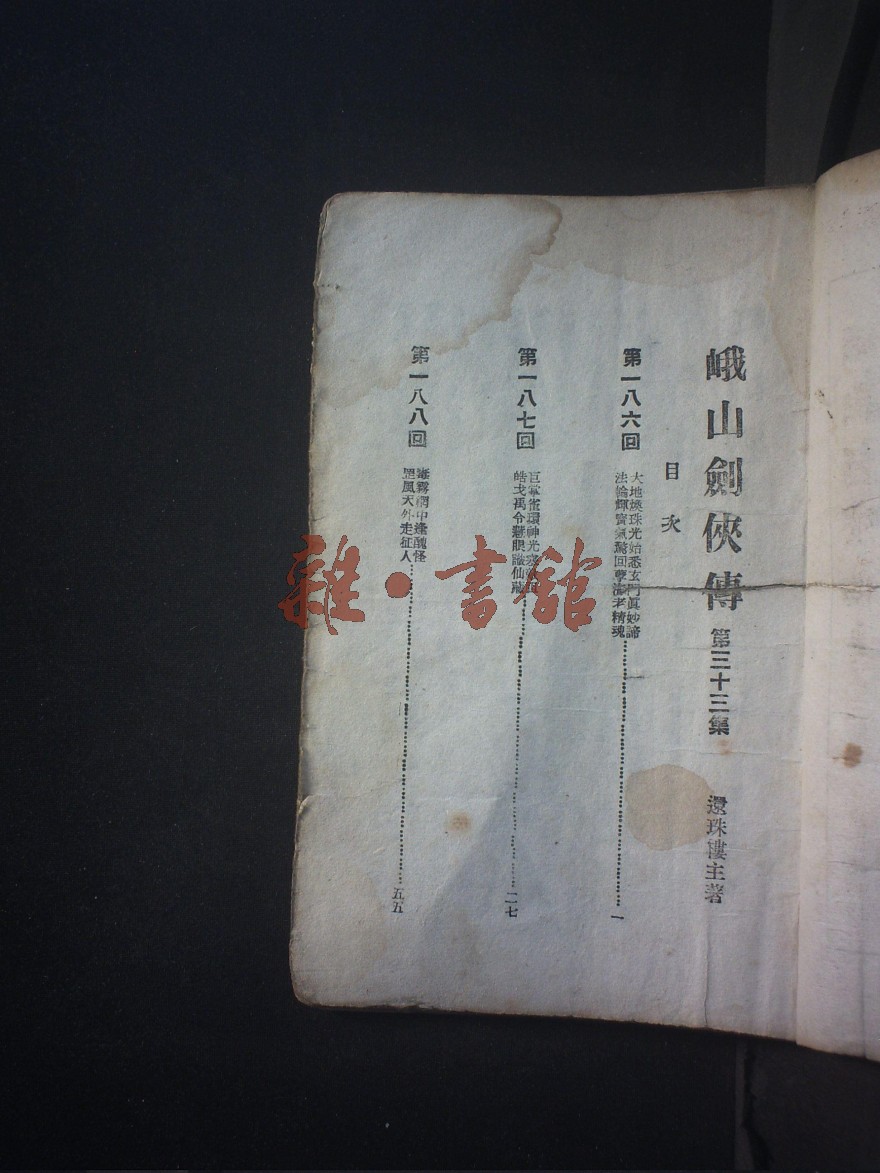 峨山劍俠傳 第三十三集 還珠樓主著
目次
第一八六回
大地煥珠光始悉玄門眞妙諦
法輪輝寶氣驚回孽海老精魂
一
第一八七回
巨掌雀環神光
皓戈禹令慧眼識仙藏
二七
第一八八回
毒霧網中逢醜怪
罡風天外走征人
五五
雜·書館